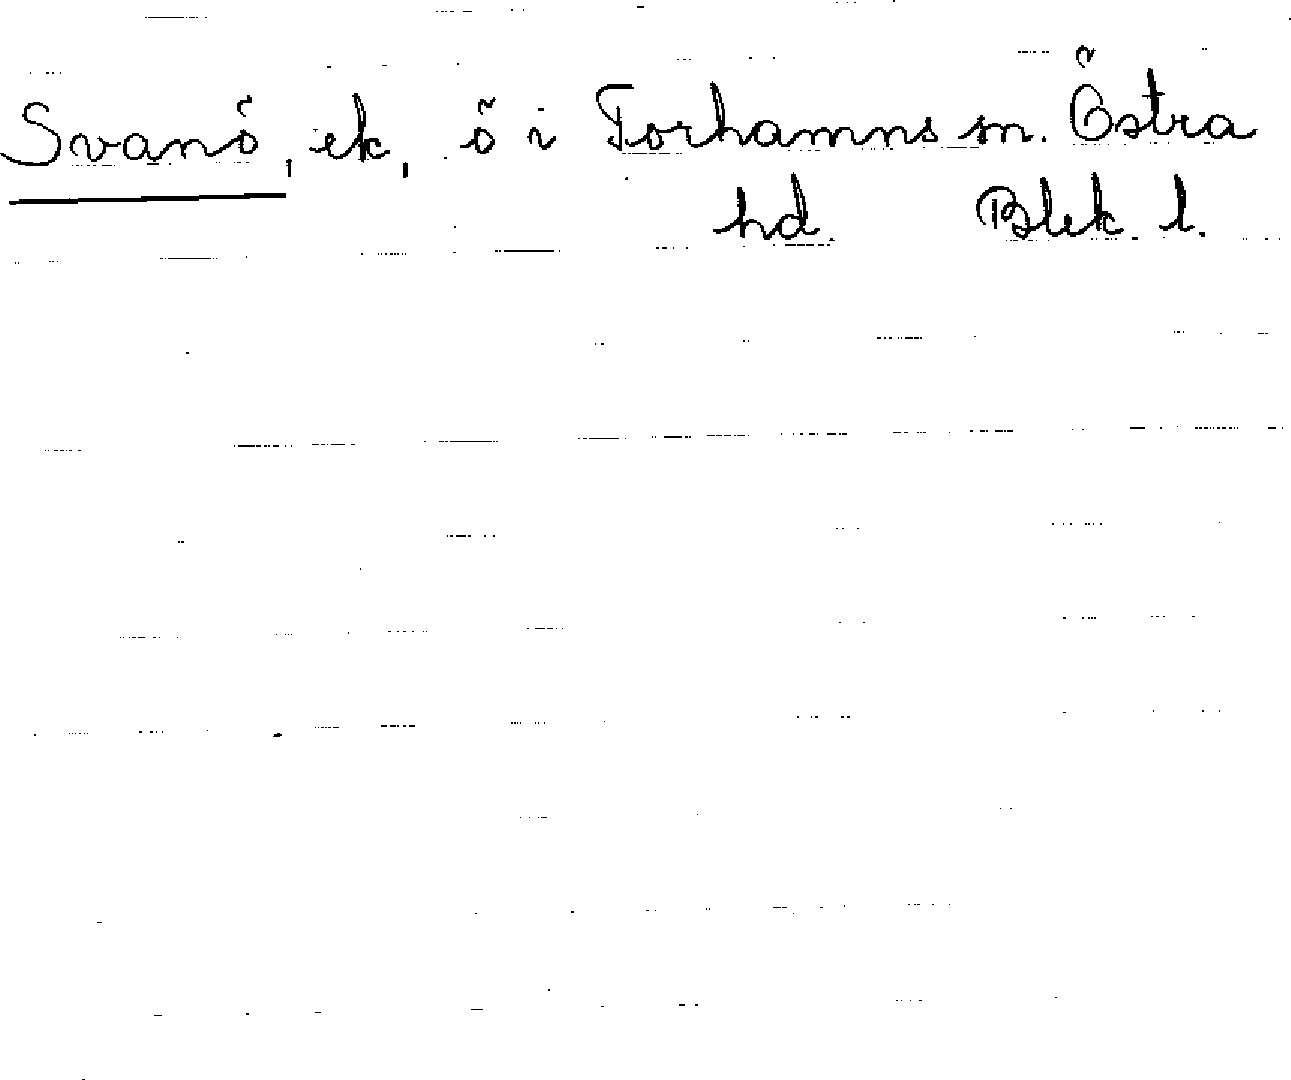 Svanö, ek, ö i Torhamns sn. Östra
hd. Blek. l.